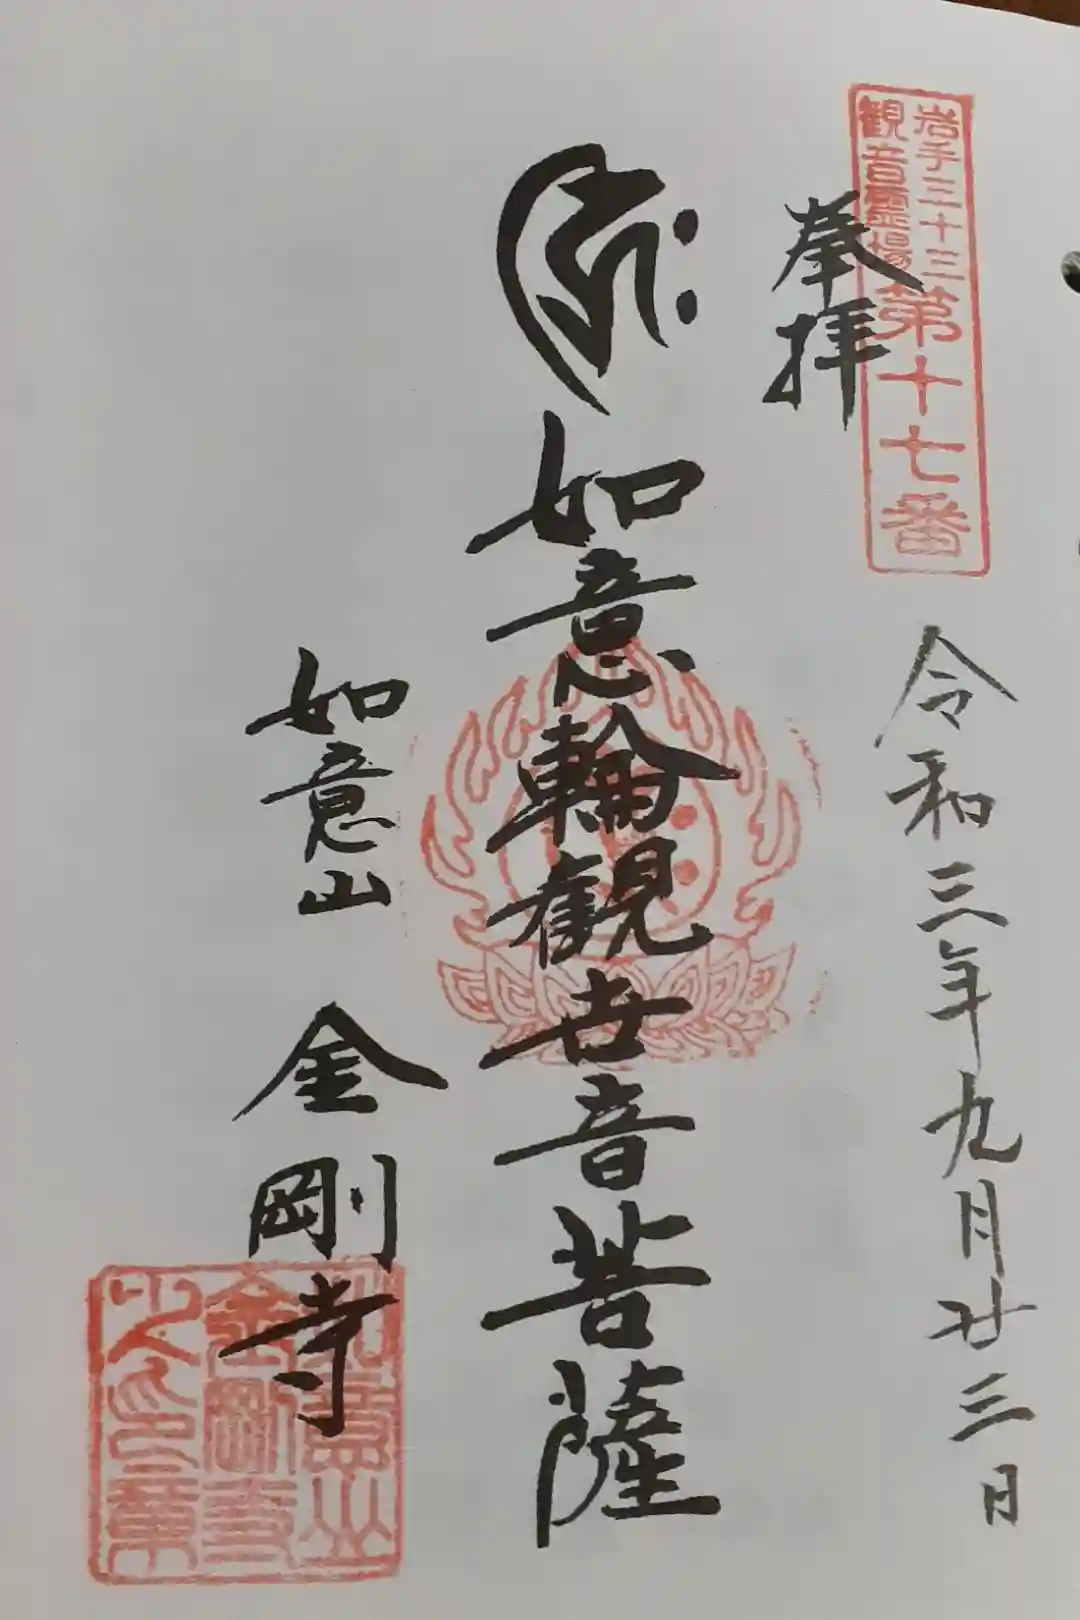 岩手三十三
観音霊場
第十七番
奉拝
令和三年九月廿三日
ह्रीः
如意輪観世音菩薩
如意山 金剛寺
如意山
金剛寺
之印章